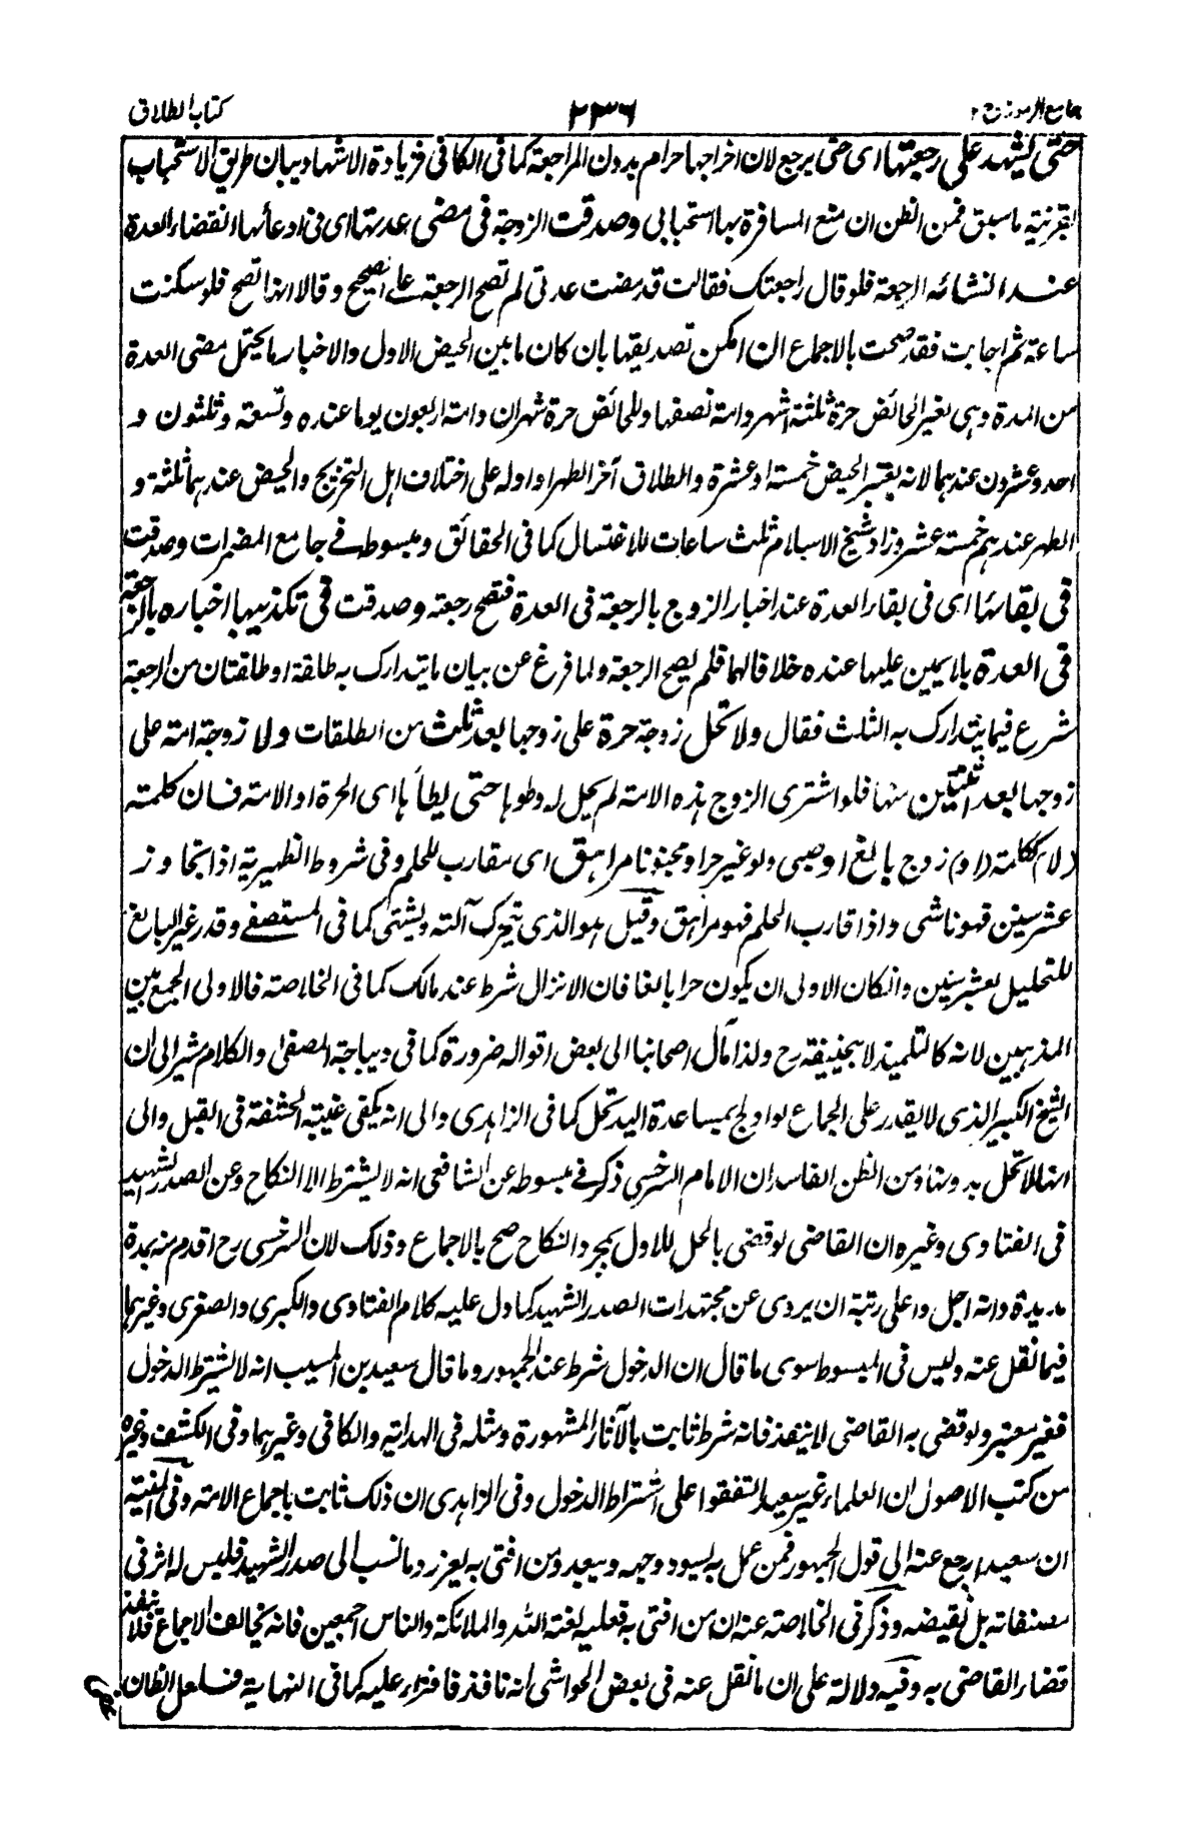 جامع الرموز ج ۲
۲۳۶
كتاب الطلاق
حتى يشهد على رجعتها اى حتى يرجع لان اخراجها حرام بدون المراجعة كما فى الكافى فزيادة الاشهاد بيان طريق الاستحباب
بقرينة ما سبق فمن الظن ان منع المسافرة بها استحبابى وصدقت الزوجة فى مضى عدتها اى فى ادعائها انقضاء العدة
عند انشائه الرجعة فلو قال راجعتك فقالت قد مضت عدتى لم تصح الرجعة على الصحيح وقالا انها تصح فلو سكتت
ساعة ثم اجابت فقد صحت بالاجماع ان امكن تصديقها بان كان ما بين الحيض الاول والاخبار ما يحتمل مضى العدة
من المدة وهى لغير الحائض حرة ثلثة اشهر وامة نصفها وللحائض حرة شهران وامة اربعون يوما عنده وتسعة وثلثون و
احد وعشرون عندهما لانه يعتبر الحيض خمسة او عشرة والطلاق آخر الطهر او اوله على اختلاف اهل التخريج والحيض عندهما ثلثة و
الطهر عندهم خمسة عشر وزاد شيخ الاسلام ثلث ساعات للاغتسال كما فى الحقائق ومبسوط فى جامع المضمرات وصدقت
فى بقائها اى فى بقاء العدة عند اخبار الزوج بالرجعة فى العدة فتصح رجعته وصدقت فى تكذيبها اخباره بالرجعة
فى العدة بلا يمين عليها عنده خلافا لهما فلم يصح الرجعة ولما فرغ عن بيان ما يتدارك به طلقة او طلقتان من الرجعة
شرع فيما يتدارك به الثلث فقال ولا تحل زوجة حرة على زوجها بعد ثلث من الطلقات ولا زوجة امة على
زوجها بعد ثنتين منها فلو اشترى الزوج هذه الامة لم يحل له وطؤها حتى يطأها اى الحرة او الامة فان كلمة
(لا) ككلمة (او) زوج بالغ او صبى ولو غير حر او مجنونا مراهق اى مقارب للحلم وفى شروط الظهيرية اذا تجاوز
عشر سنين فهو ناشى واذا قارب الحلم فهو مراهق وقيل هو الذى يتحرك آلته ويشتهى كما فى المستصفى وقدر غير البالغ
للتحليل بعشر سنين وان كان الاولى ان يكون حرا بالغا فان الانزال شرط عند مالك كما فى الخلاصة فالاولى الجمع بين
المذهبين لانه كالتلميذ لابى حنيفة رح ولذا مال اصحابنا الى بعض اقواله ضرورة كما فى ديباجة المصفى والكلام مشير الى ان
الشيخ الكبير الذى لا يقدر على الجماع لو اولج بمساعدة اليد تحل كما فى الزاهدى والى انه يكفى غيبة الحشفة فى القبل والى
انها لا تحل بدونها ومن الظن الفاسد ان الامام السرخسى ذكر فى مبسوطه عن الشافعى انه لا يشترط الا النكاح وعن الصدر الشهيد
فى الفتاوى وغيره ان القاضى لو قضى بالحل للاول بمجرد النكاح صح بالاجماع وذلك لان السرخسى رح اقدم منه بمدة
مديدة وانه اجل واعلى رتبة ان يروى عن مجتهدات الصدر الشهيد كما دل عليه كلام الفتاوى والكبرى والصغرى وغيرها
فيما نقل عنه وليس فى المبسوط سوى ما قال ان الدخول شرط عند الجمهور وما قال سعيد بن المسيب انه لا يشترط الدخول
فغير معتبر ولو قضى به القاضى لا ينفذ فانه شرط ثابت بالآثار المشهورة ومثله فى الهداية والكافى وغيرهما وفى الكشف وغيره
من كتب الاصول ان العلماء غير سعيد اتفقوا على اشتراط الدخول وفى الزاهدى ان ذلك ثابت باجماع الامة وفى المنية
ان سعيدا رجع عنه الى قول الجمهور فمن عمل به يسود وجهه ويبعد ومن افتى به يعزر وما نسب الى صدر الشهيد فليس له اثر فى
مصنفاته بل نقيضه وذكر فى الخلاصة عنه ان من افتى به فعليه لعنة الله والملائكة والناس اجمعين فانه يخالف الاجماع فلا ينفذ
قضاء القاضى به وفيه دلالة على ان ما نقل عنه فى بعض الحواشى انه نافذ فافتراء عليه كما فى النهاية فلعل الظان